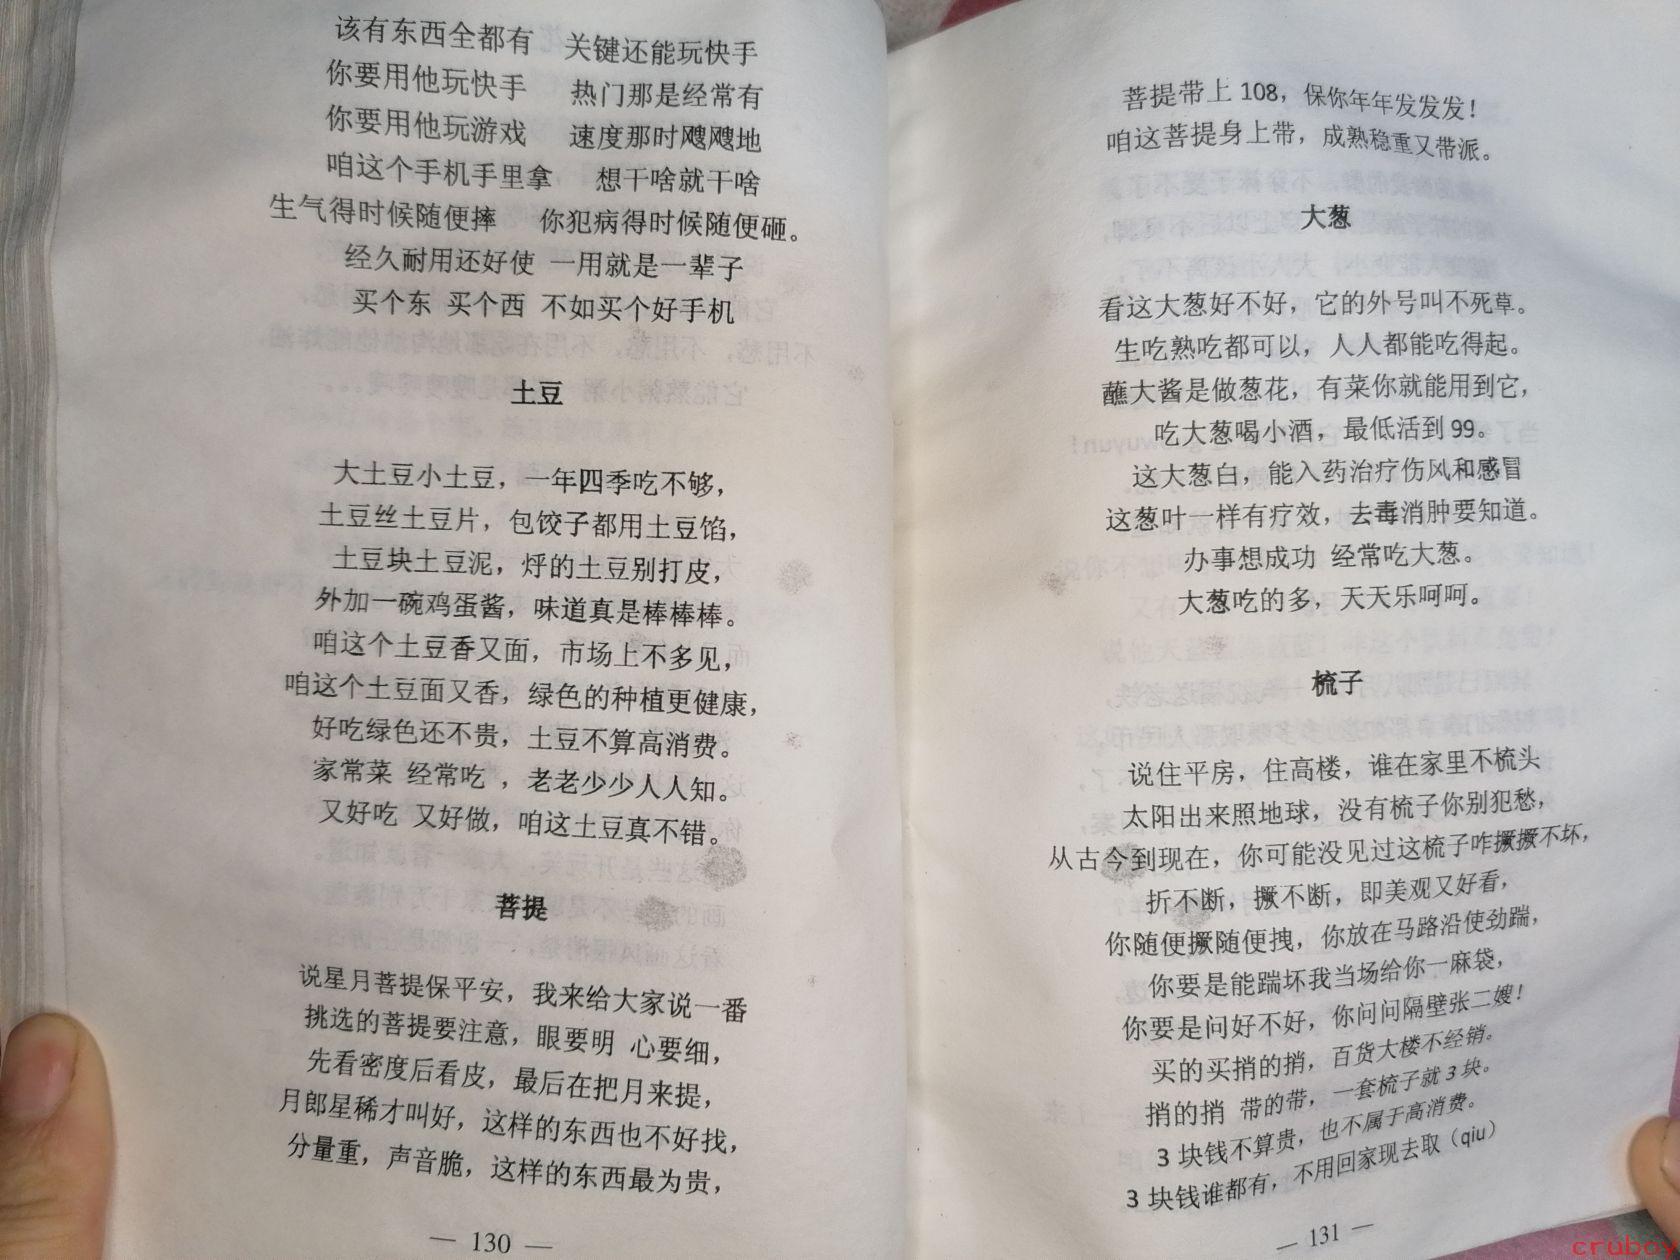 该有东西全都有 关键还能玩快手
你要用他玩快手 热门那是经常有
你要用他玩游戏 速度那时飕飕地
咱这个手机手里拿 想干啥就干啥
生气得时候随便摔 你犯病得时候随便砸。
经久耐用还好使 一用就是一辈子
买个东 买个西 不如买个好手机
土豆
大土豆小土豆，一年四季吃不够，
土豆丝土豆片，包饺子都用土豆馅，
土豆块土豆泥，烀的土豆别打皮，
外加一碗鸡蛋酱，味道真是棒棒棒。
咱这个土豆香又面，市场上不多见，
咱这个土豆面又香，绿色的种植更健康，
好吃绿色还不贵，土豆不算高消费。
家常菜 经常吃 ，老老少少人人知。
又好吃 又好做，咱这土豆真不错。
菩提
说星月菩提保平安，我来给大家说一番
挑选的菩提要注意，眼要明 心要细，
先看密度后看皮，最后在把月来提，
月郎星稀才叫好，这样的东西也不好找，
分量重，声音脆，这样的东西最为贵，
— 130 —
菩提带上 108，保你年年发发发！
咱这菩提身上带，成熟稳重又带派。
大葱
看这大葱好不好，它的外号叫不死草。
生吃熟吃都可以，人人都能吃得起。
蘸大酱是做葱花，有菜你就能用到它，
吃大葱喝小酒，最低活到 99。
这大葱白，能入药治疗伤风和感冒
这葱叶一样有疗效，去毒消肿要知道。
办事想成功 经常吃大葱。
大葱吃的多，天天乐呵呵。
梳子
说住平房，住高楼，谁在家里不梳头
太阳出来照地球，没有梳子你别犯愁，
从古今到现在，你可能没见过这梳子咋撅撅不坏，
折不断，撅不断，即美观又好看，
你随便撅随便拽，你放在马路沿使劲踹，
你要是能踹坏我当场给你一麻袋，
你要是问好不好，你问问隔壁张二嫂！
买的买捎的捎，百货大楼不经销。
捎的捎 带的带，一套梳子就 3 块。
3 块钱不算贵，也不属于高消费。
3 块钱谁都有，不用回家现去取（qiu）
— 131 —
cruboy